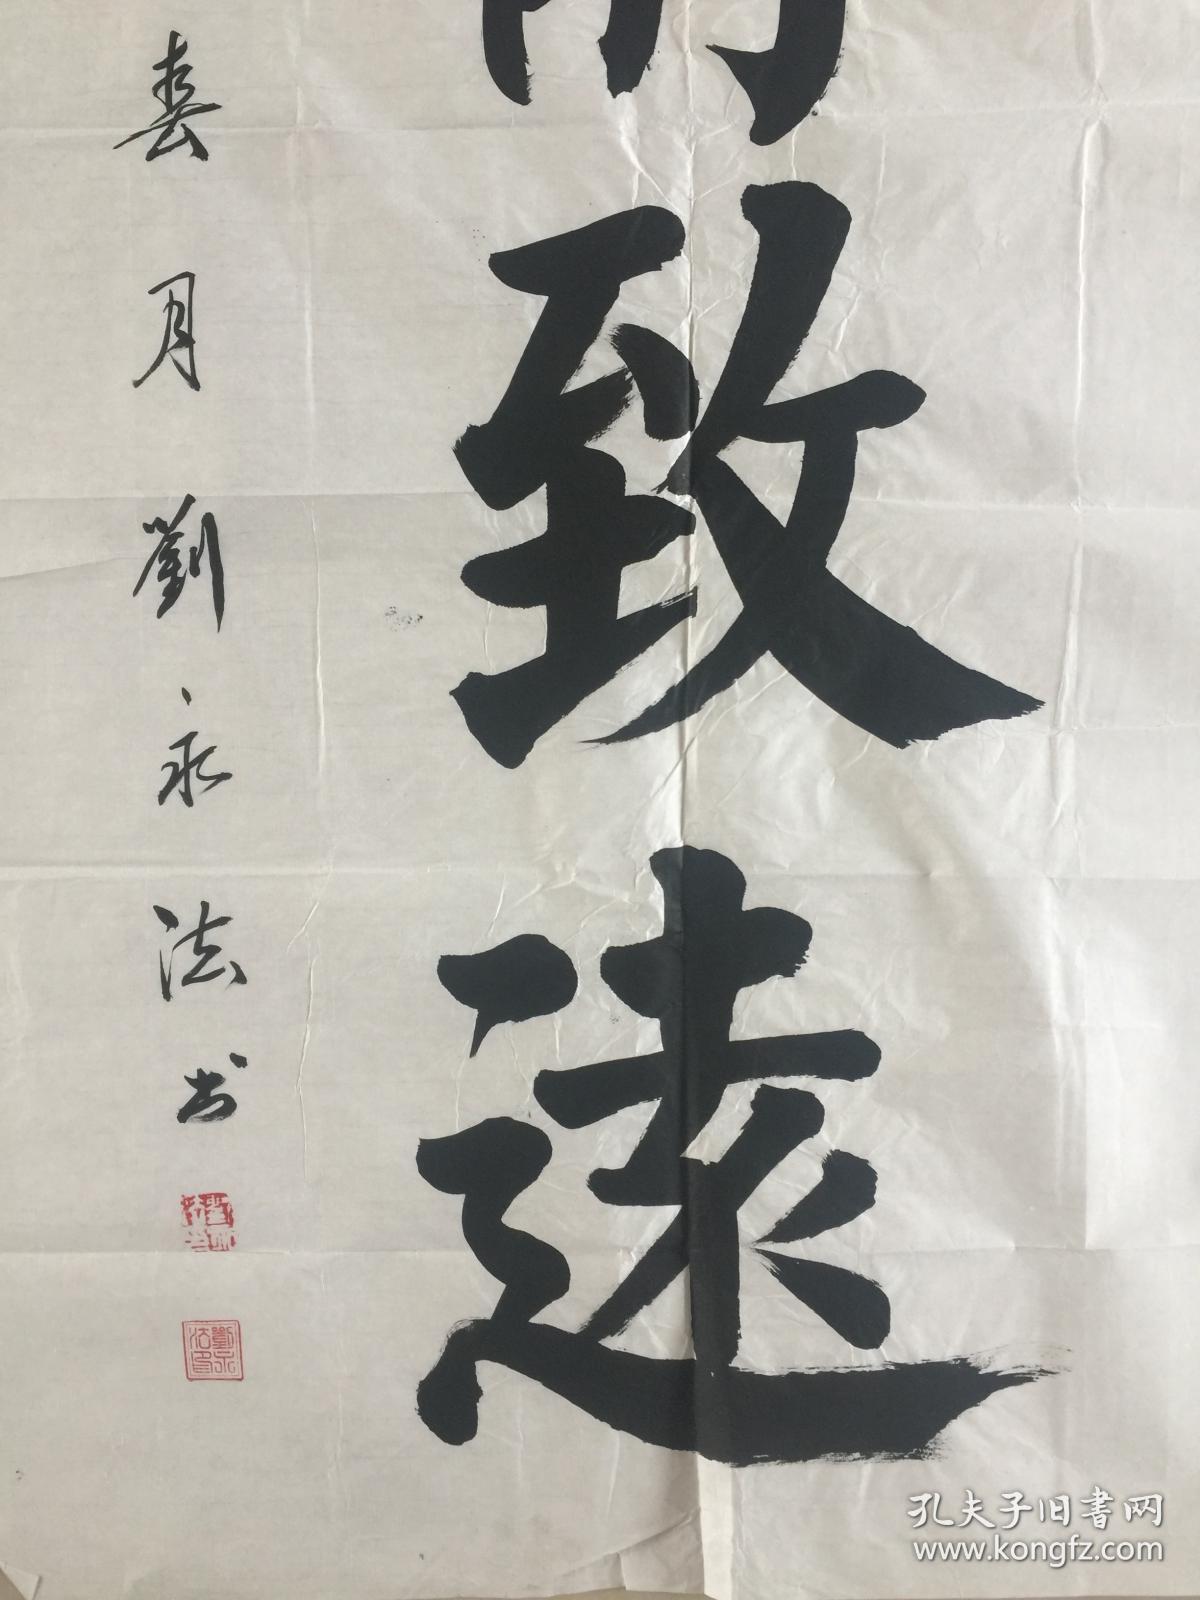 致遠
春月劉永法书
劉永法印
孔夫子旧書网
www.kongfz.com